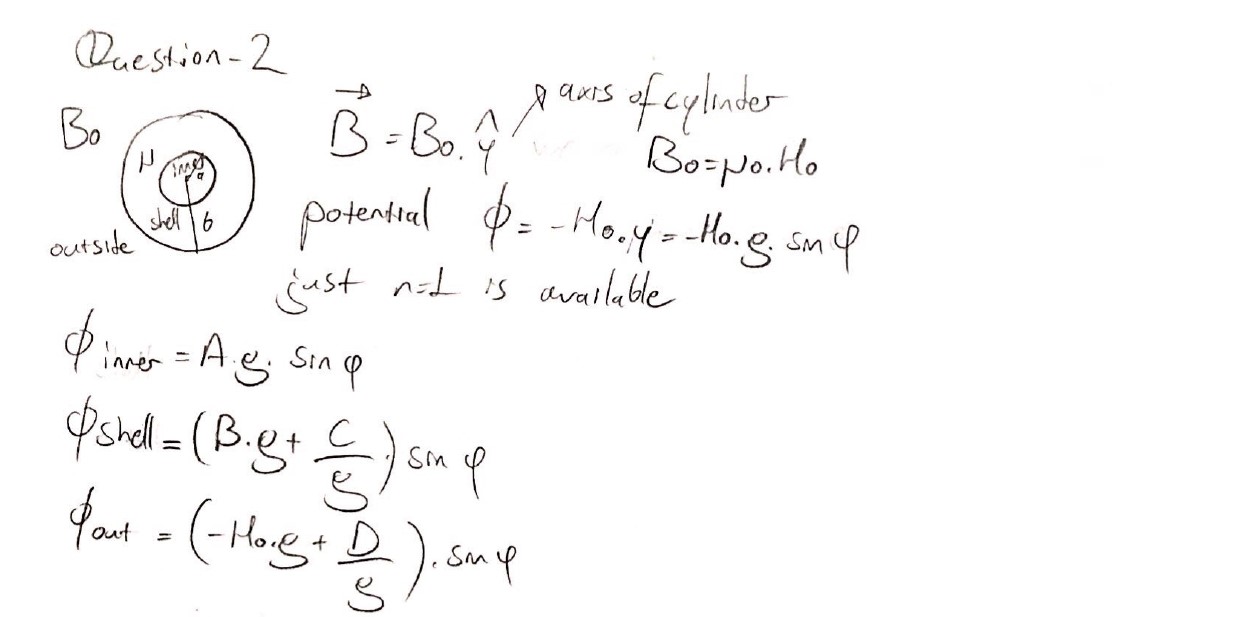 Question-2
B₀
μ
inner
a
shell
b
outside
B⃗ = B₀.ŷ
axis of cylinder
B₀=μ₀.H₀
potential ϕ = -H₀.y = -H₀.ρ. sin φ
just n=1 is available
ϕ inner = A.ρ. sin φ
ϕ shell = (B.ρ + C/ρ) sin φ
ϕ out = (-H₀.ρ + D/ρ). sin φ